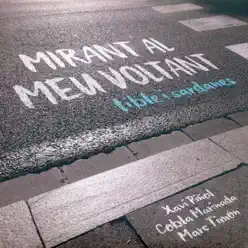 MIRANT AL
MEU VOLTANT
tible i sardanes
Xavi Piñol
Cobla Marinada
Marc Timón